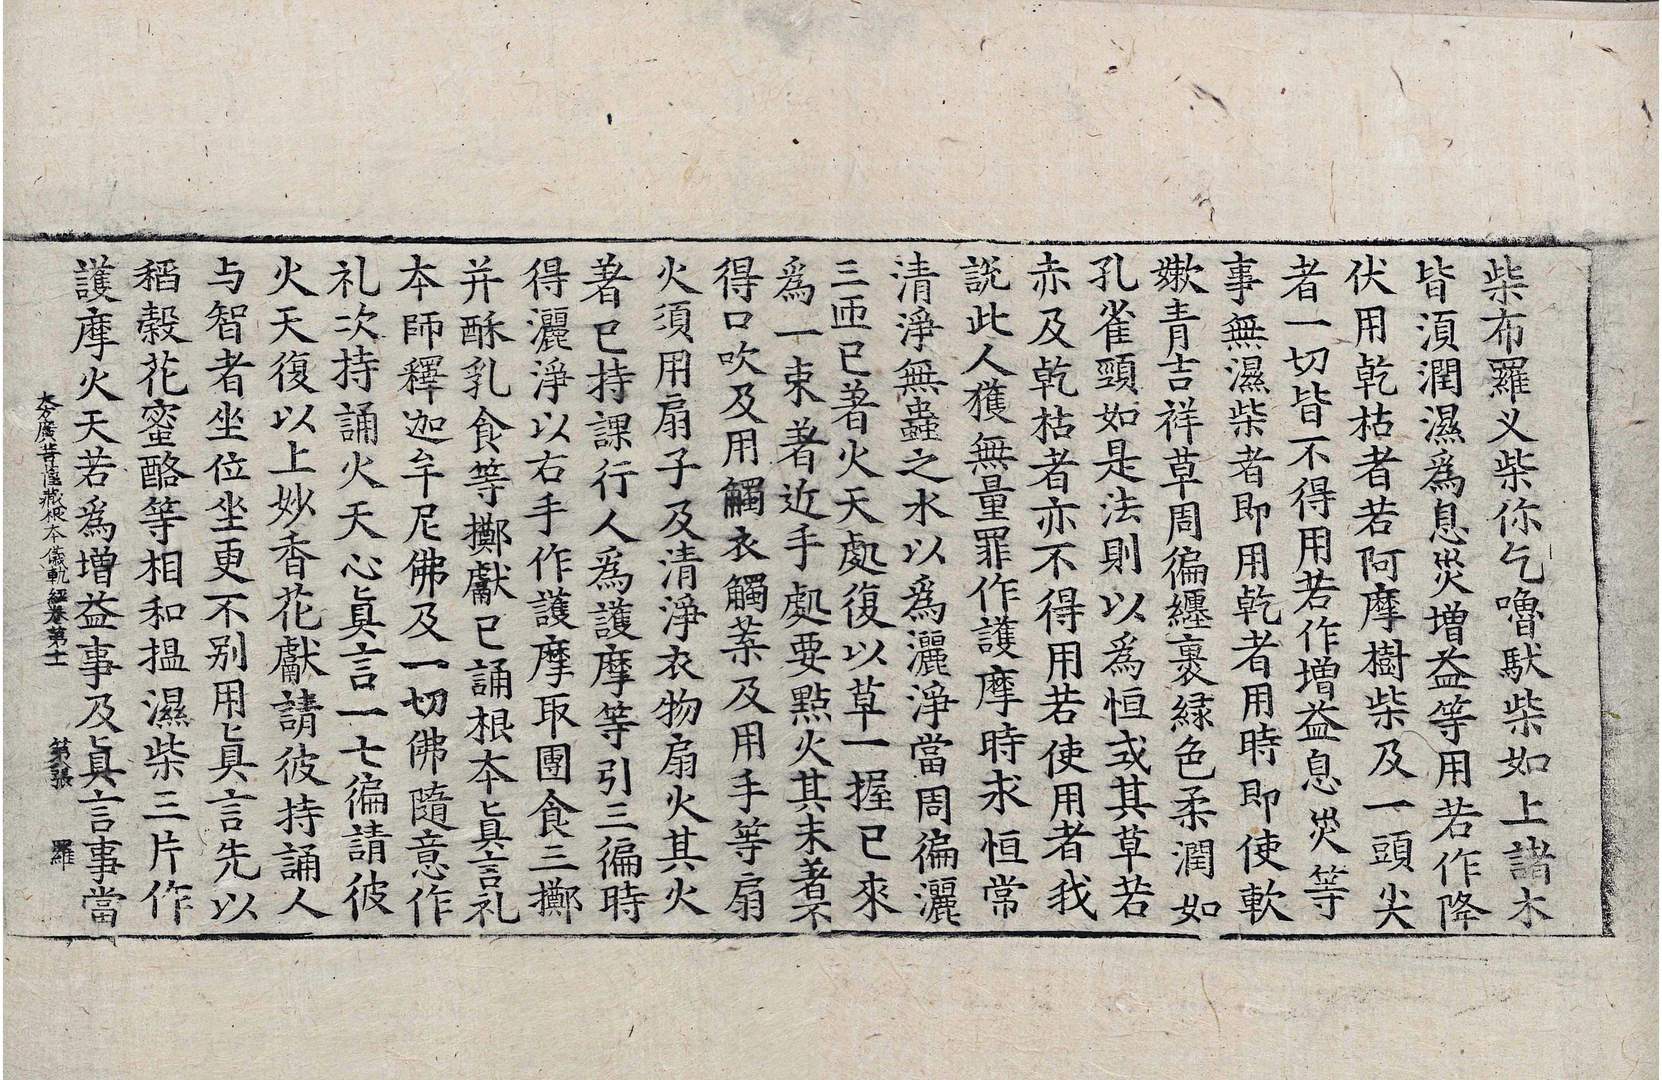 柴布羅义柴你乞嚕馱柴如上諸木
皆湏潤濕爲息災増益等用若作降
伏用乾枯者若阿摩樹柴及一頭尖
者一切皆不得用若作増益息災等
事無濕柴者即用乾者用時即使軟
嫰青吉祥草周徧纏裹緑色柔潤如
孔雀頸如是法則以爲恒式其草若
赤及乾枯者亦不得用若使用者我
說此人獲無量罪作護摩時求恒常
清淨無蟲之水以爲灑淨當周徧灑
三匝已著火天處復以草一握已來
爲一束著近手處要點火其末著不
得口吹及用觸衣觸葉及用手等扇
火須用扇子及清淨衣物扇火其火
著已持課行人爲護摩等引三徧時
得灑淨以右手作護摩取團食三擲
并酥乳食等擲獻已誦根本眞言礼
本師釋迦牟尼佛及一切佛隨意作
礼次持誦火天心眞言一七徧請彼
火天復以上妙香花獻請彼持誦人
与智者坐位坐更不别用眞言先以
稻榖花蜜酪等相和搵濕柴三片作
護摩火天若爲増益事及眞言事當
大方廣菩薩藏根本儀軌經卷第十 第張 羅